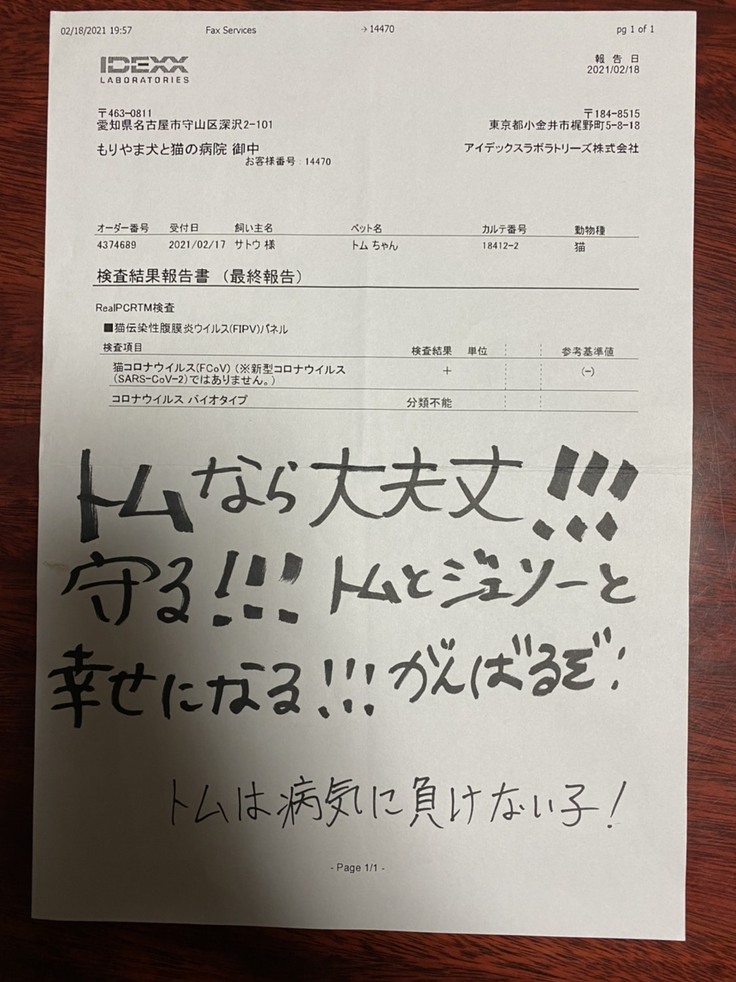 02/18/2021 19:57 Fax Services →14470 pg 1 of 1
IDEXX
LABORATORIES
報告日
2021/02/18
〒463-0811
愛知県名古屋市守山区深沢2-101
もりやま犬と猫の病院 御中
お客様番号 14470
〒184-8515
東京都小金井市梶野町5-8-18
アイデックスラボラトリーズ株式会社
オーダー番号 受付日 飼い主名 ペット名 カルテ番号 動物種
4374689 2021/02/17 サトウ 様 トム ちゃん 18412-2 猫
検査結果報告書 (最終報告)
RealPCRTM検査
■猫伝染性腹膜炎ウイルス(FIPV)パネル
検査項目 検査結果 単位 参考基準値
猫コロナウイルス(FCoV) (※新型コロナウイルス
(SARS-CoV-2)ではありません。) + (-)
コロナウイルス バイオタイプ 分類不能
トムなら大丈夫!!!
守る!!! トムとジェリーと
幸せになる!!! がんばるぞ!
トムは病気に負けない子!
- Page 1/1 -